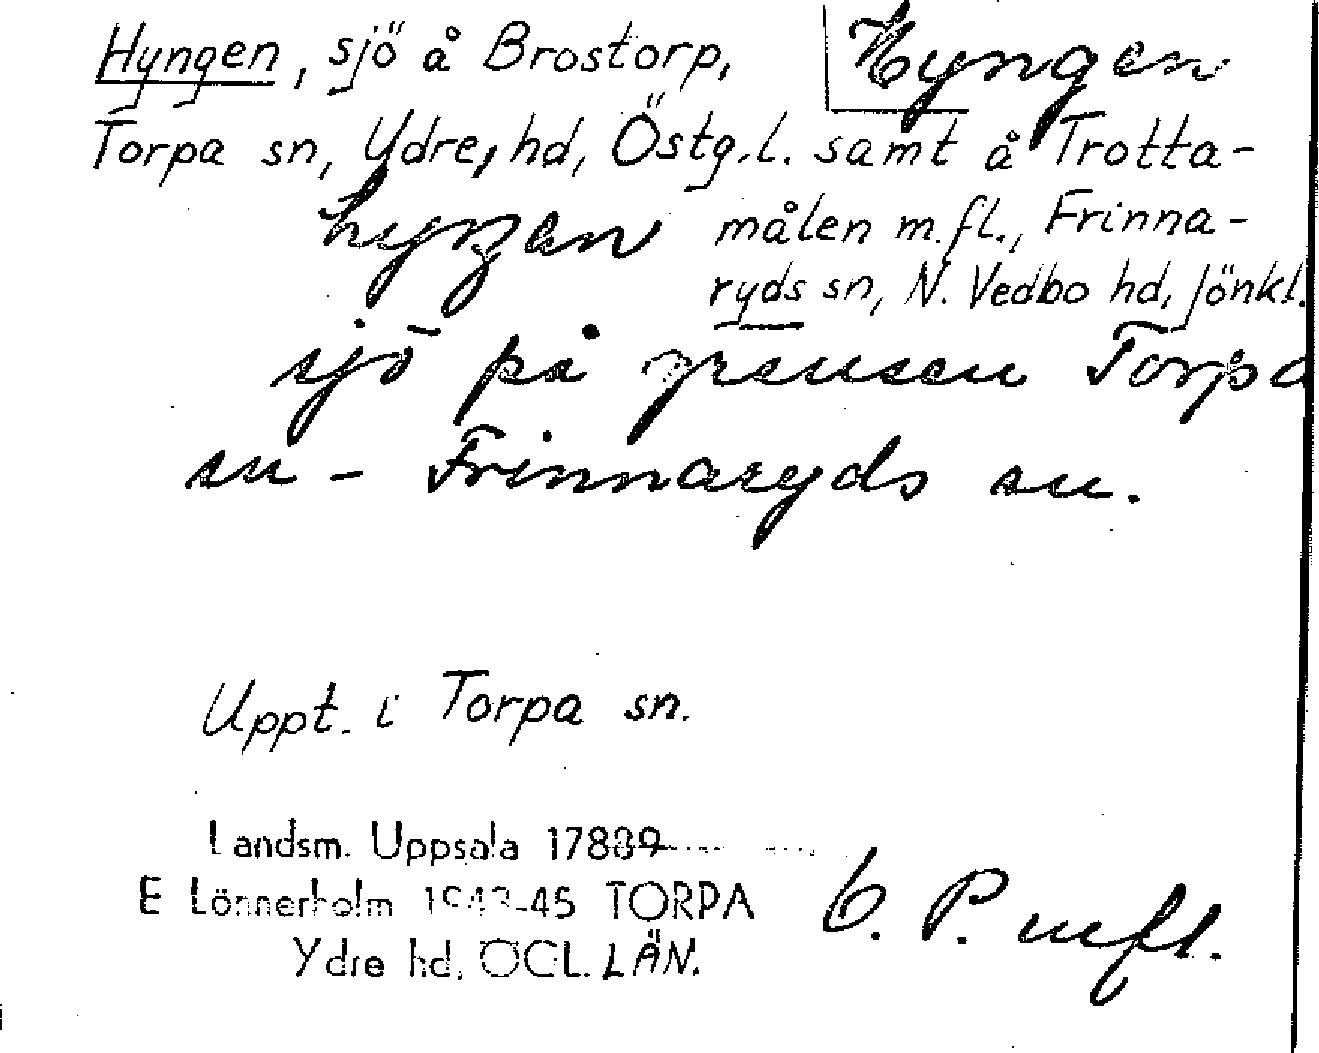 Hyngen, sjö å Brostorp,
Hyngen
Torpa sn, Ydre, hd, Östg.l. samt å Trotta-
målen m.fl., Frinna-
ryds sn, N. Vedbo hd, Jönkl.
sjö på gränsen Torpa
sn - Frinnaryds sn.
Uppt. i Torpa sn.
Landsm. Uppsala 17889
E Lönnerholm 1943-45 TORPA
Ydre hd, ÖGL. LÄN.
P. mfl.